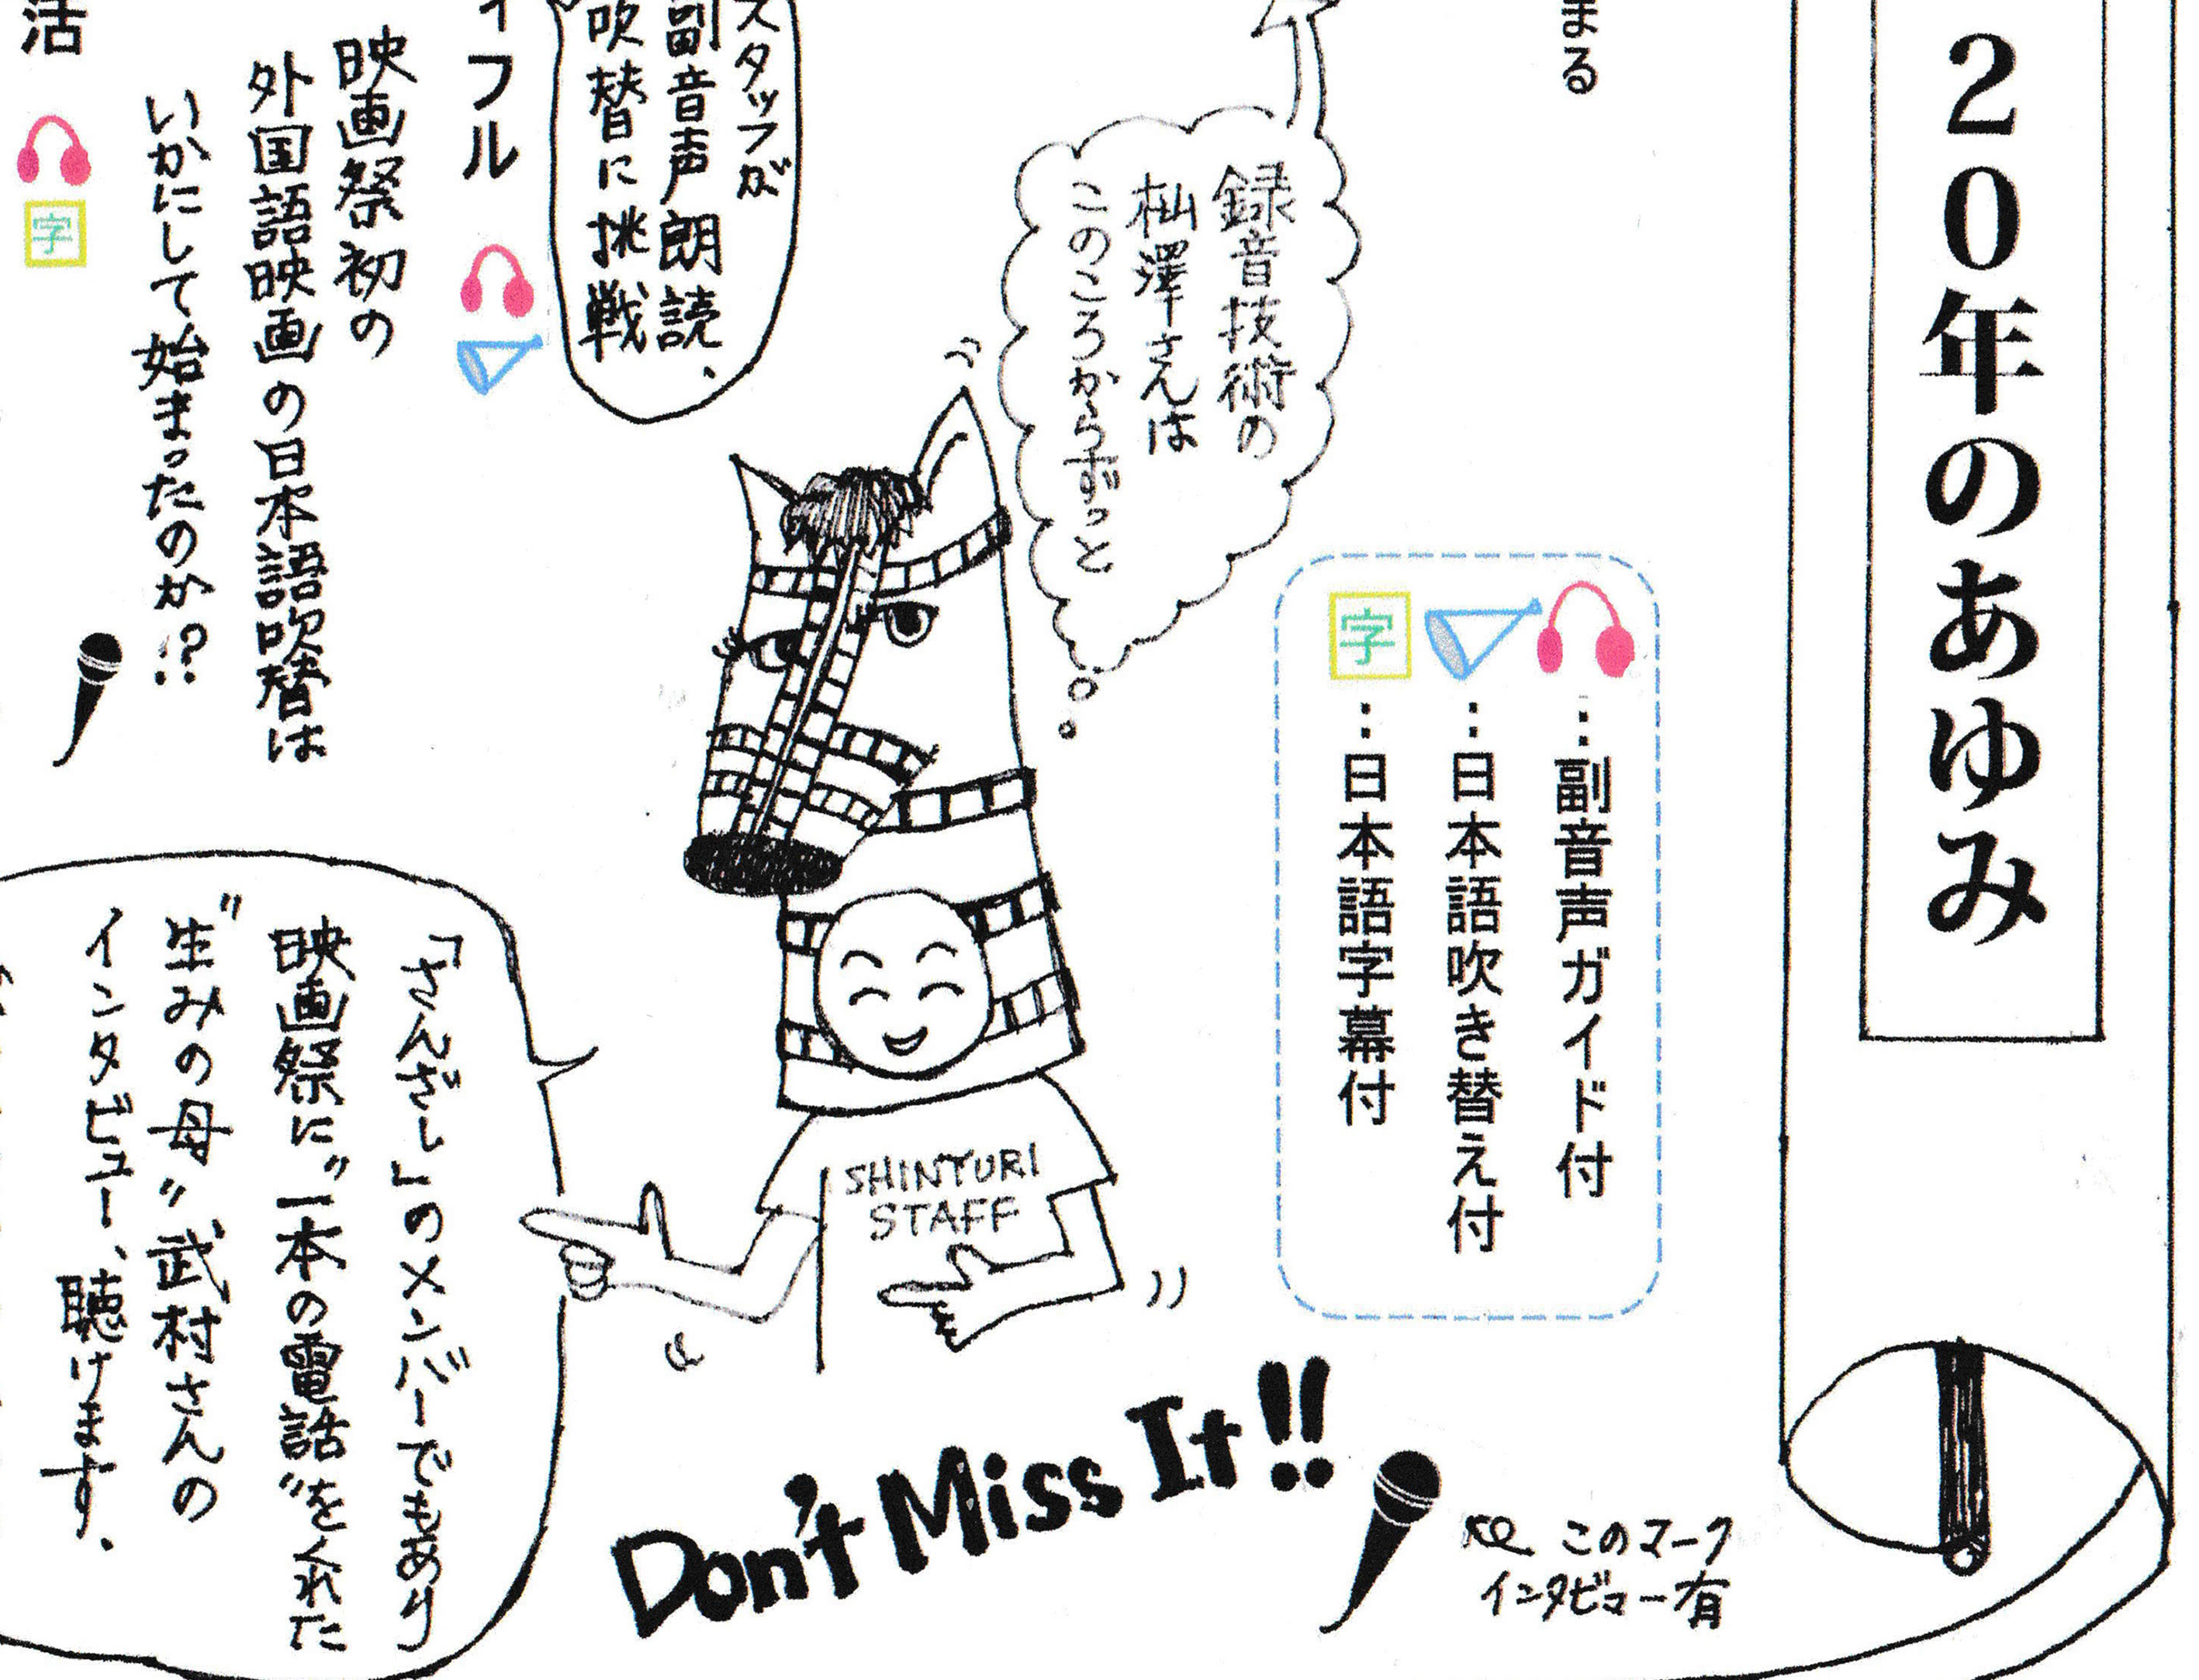 20年のあゆみ
まる
…副音声ガイド付
…日本語吹き替え付
字…日本語字幕付
録音技術の
杣澤さんは
このころからずっと
スタッフが
副音声朗読、
吹替に挑戦
イフル
映画祭初の
外国語映画の日本語吹替は
いかにして始まったのか!?
活
字
「さんざし」のメンバーでもあり
映画祭に"一本の電話"をくれた
"生みの母"武村さんの
インタビュー、聴けます。
SHINYURI
STAFF
Don't Miss It!!
このマーク
インタビュー有